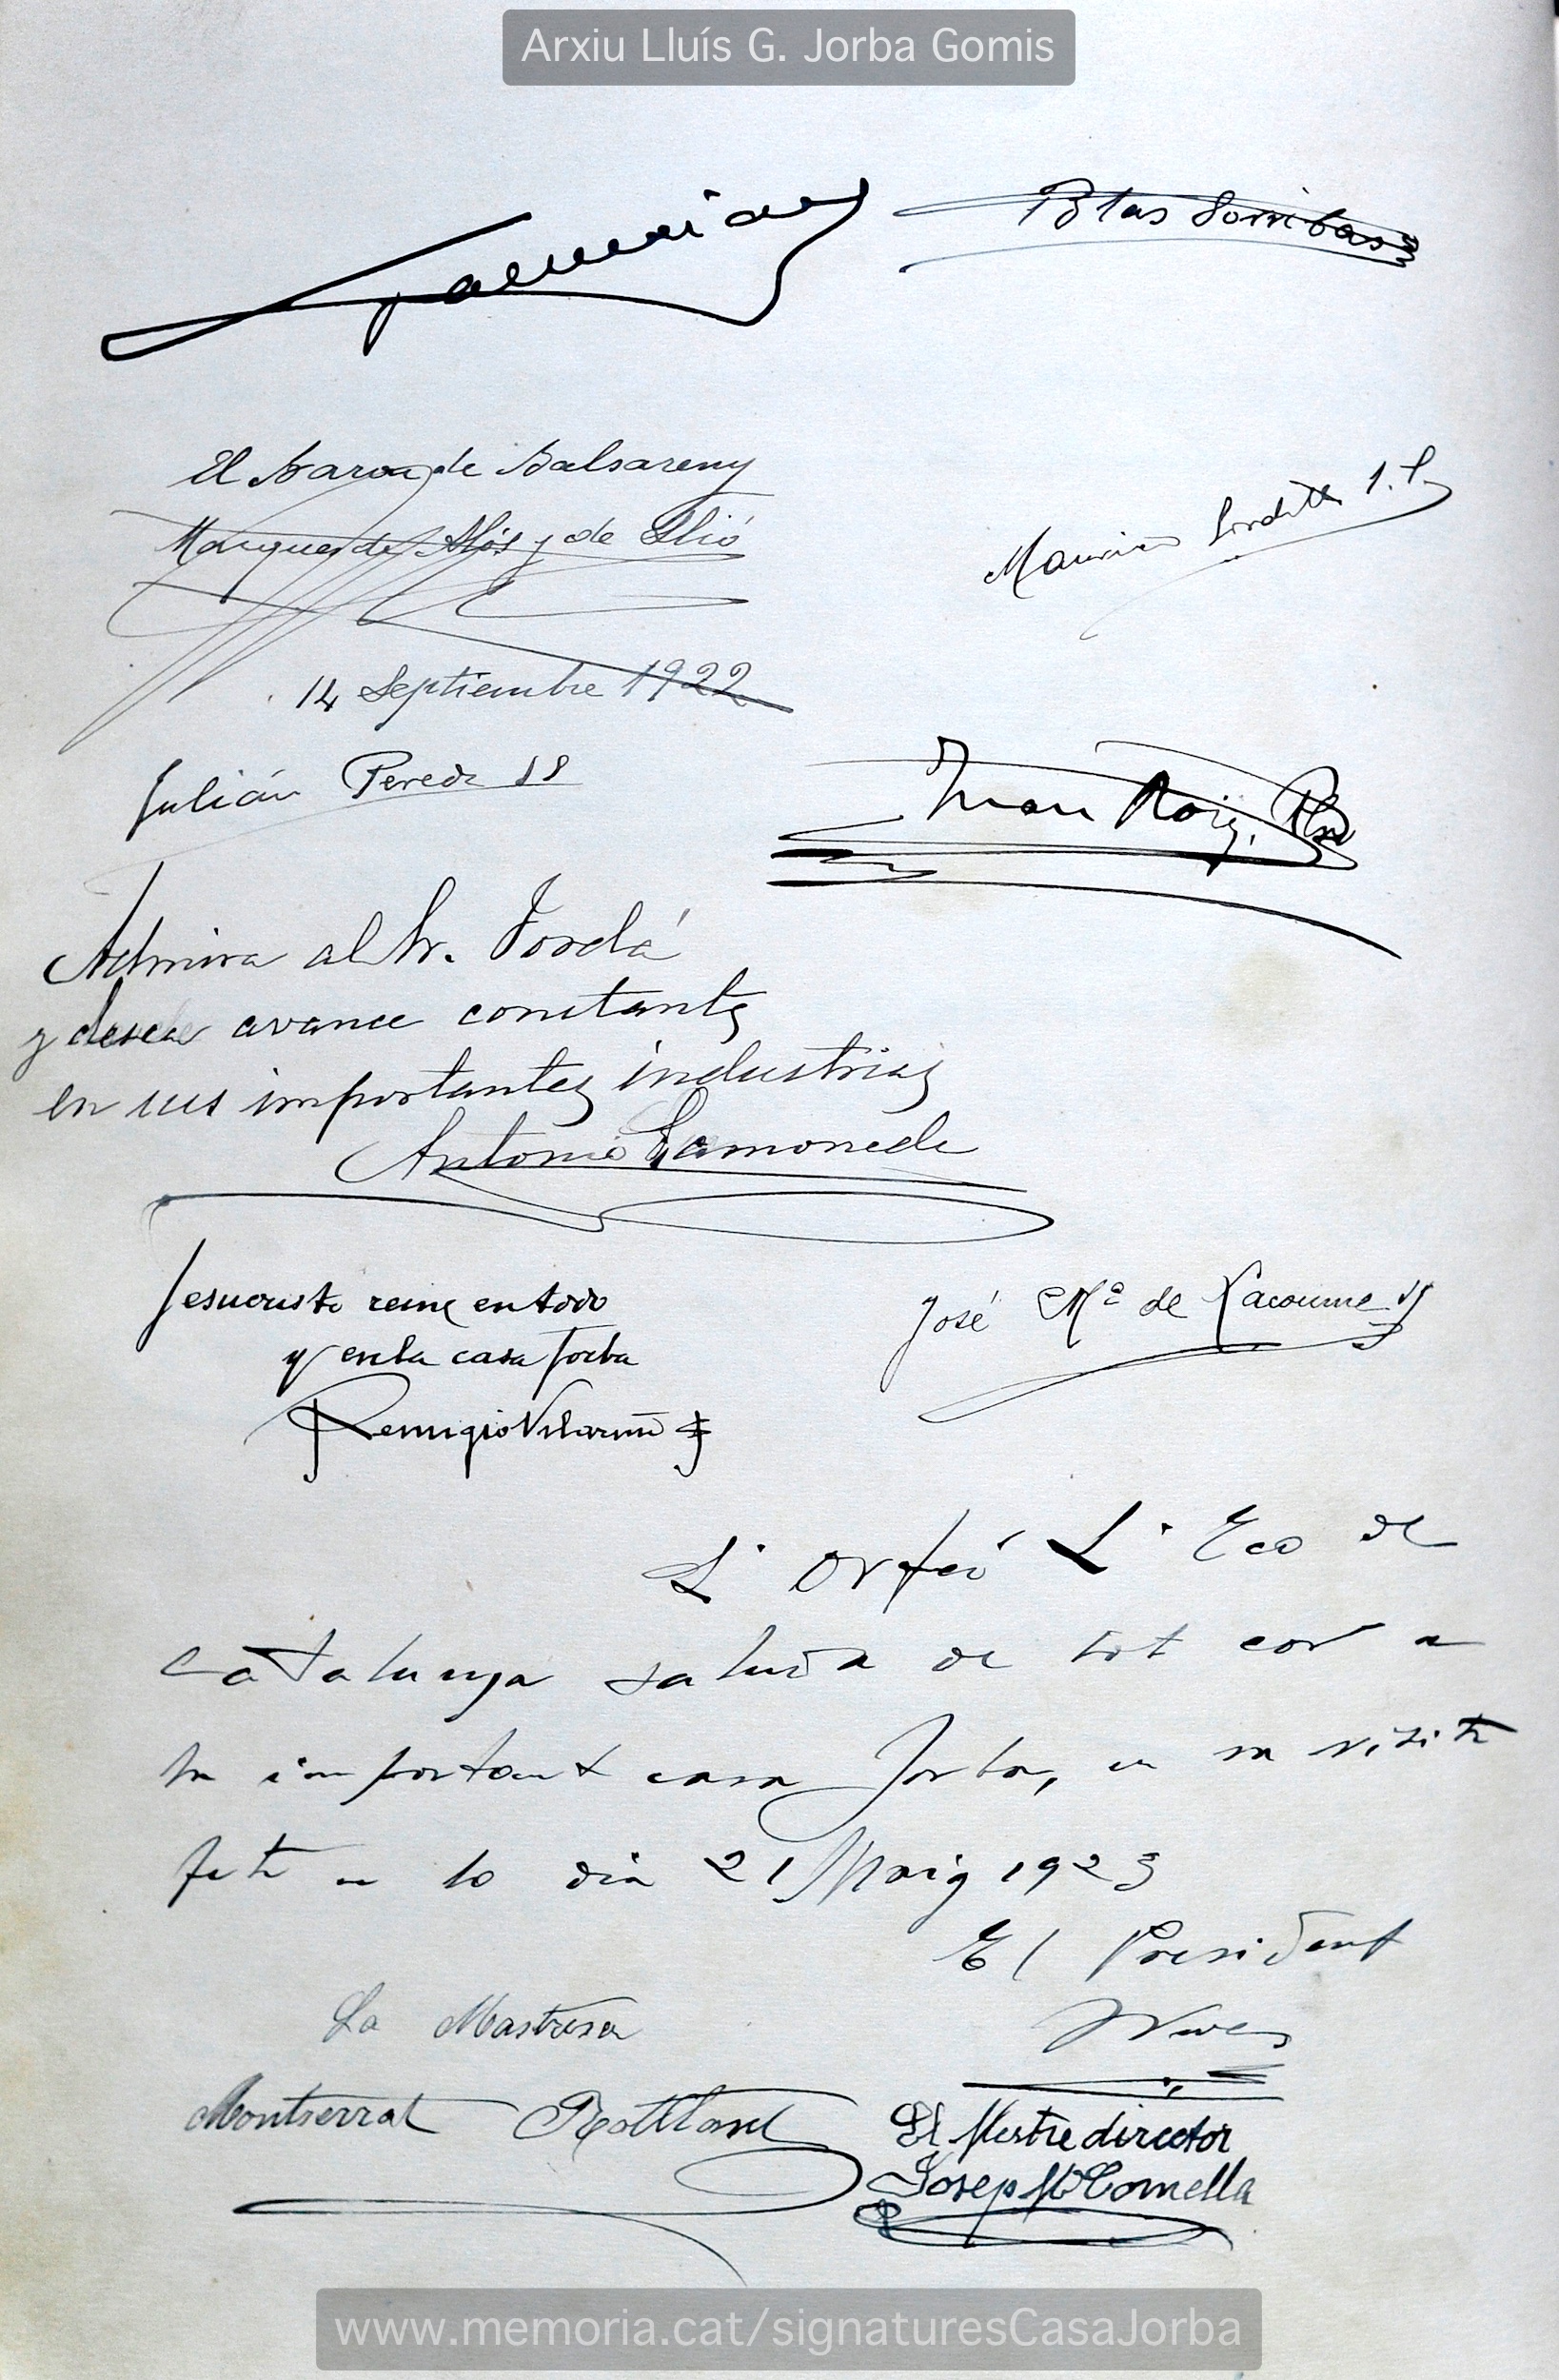 Arxiu Lluís G. Jorba Gomis
Blas Sorribas
El Baron de Balsareny
Marques de Alós y de Llió
14 Septiembre 1922
Mauricio
Julián Pereda SS
Juan Roig, Pbro
Admira al Sr. Jordá
y desea avance constante
en sus importantes industrias
Antonio Lamoneda
Jesucristo reine en todo
y en la casa Jorba
Remigio Vilariño SJ
José Mª de Lacoume SJ
L'Orfeó L'Eco de
Catalunya saluda de tot cor a
la important casa Jorba, en sa visita
feta en lo dia 21 Maig 1923
El President
Vives
La Mastresa
Montserrat Rottland
El Mestre director
Josep Mª Comella
www.memoria.cat/signaturesCasaJorba